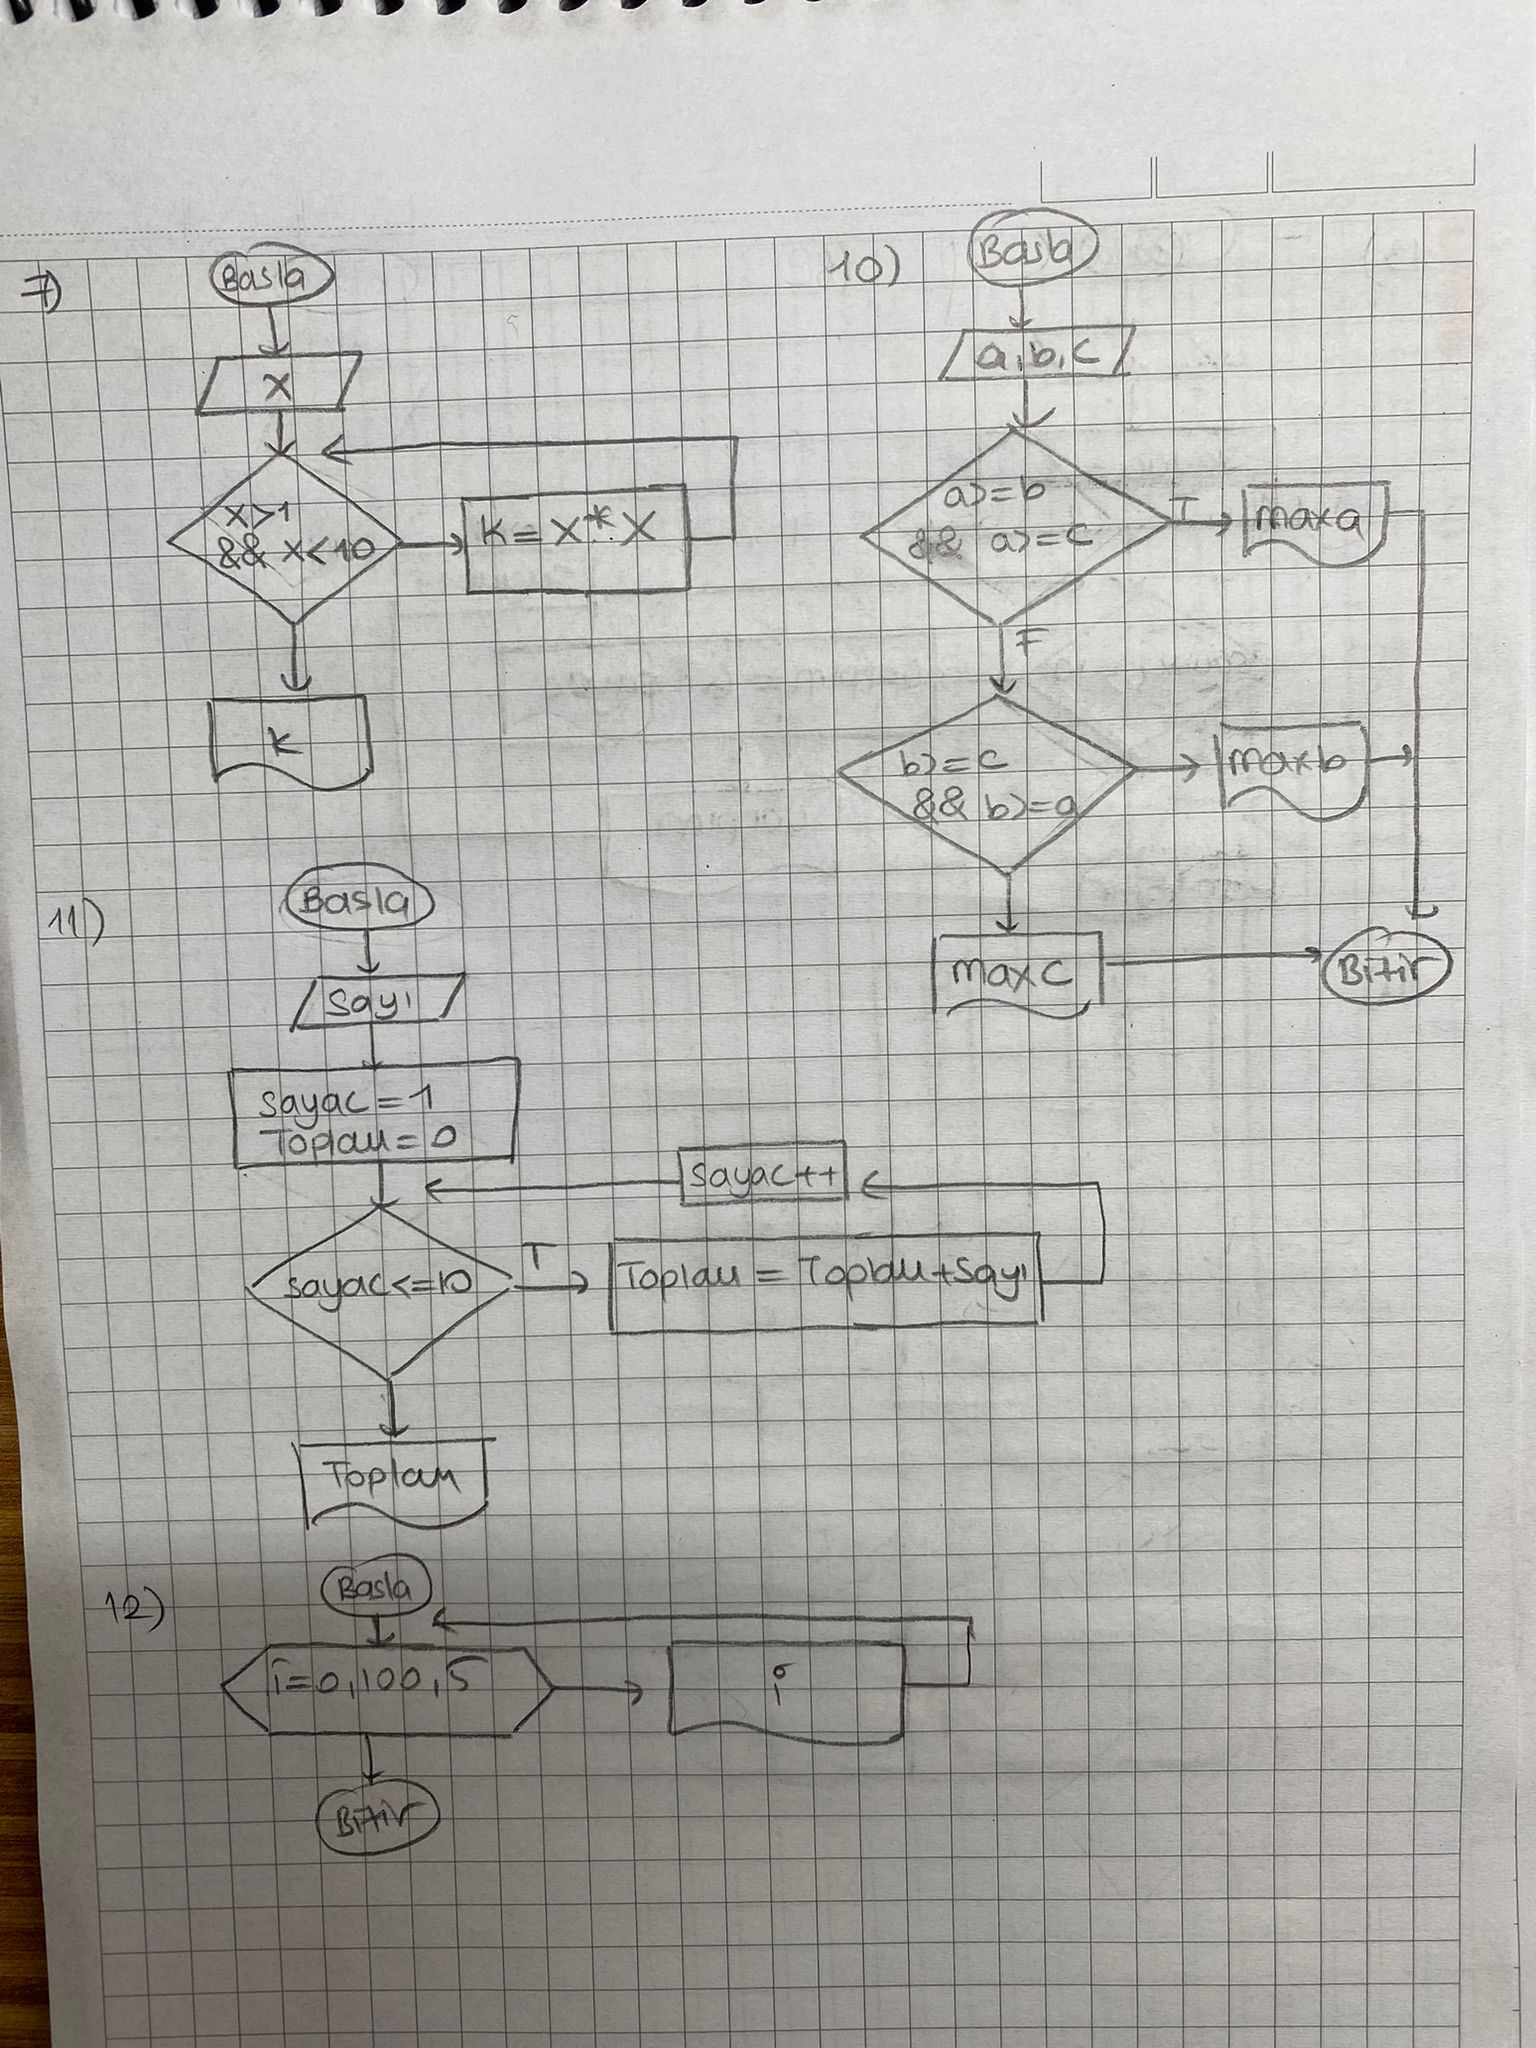 7)
Basla
X
X>1
&& X<10
K=X*X
K
10)
Basla
a,b,c
a>=b
&& a>=c
T
maxa
F
b>=c
&& b>=a
maxb
maxc
Bitir
11)
Basla
Sayı
Sayac=1
Toplam=0
Sayac++
Sayac<=10
T
Toplam=Toplam+Sayı
Toplam
12)
Basla
i=0,100,5
i
Bitir